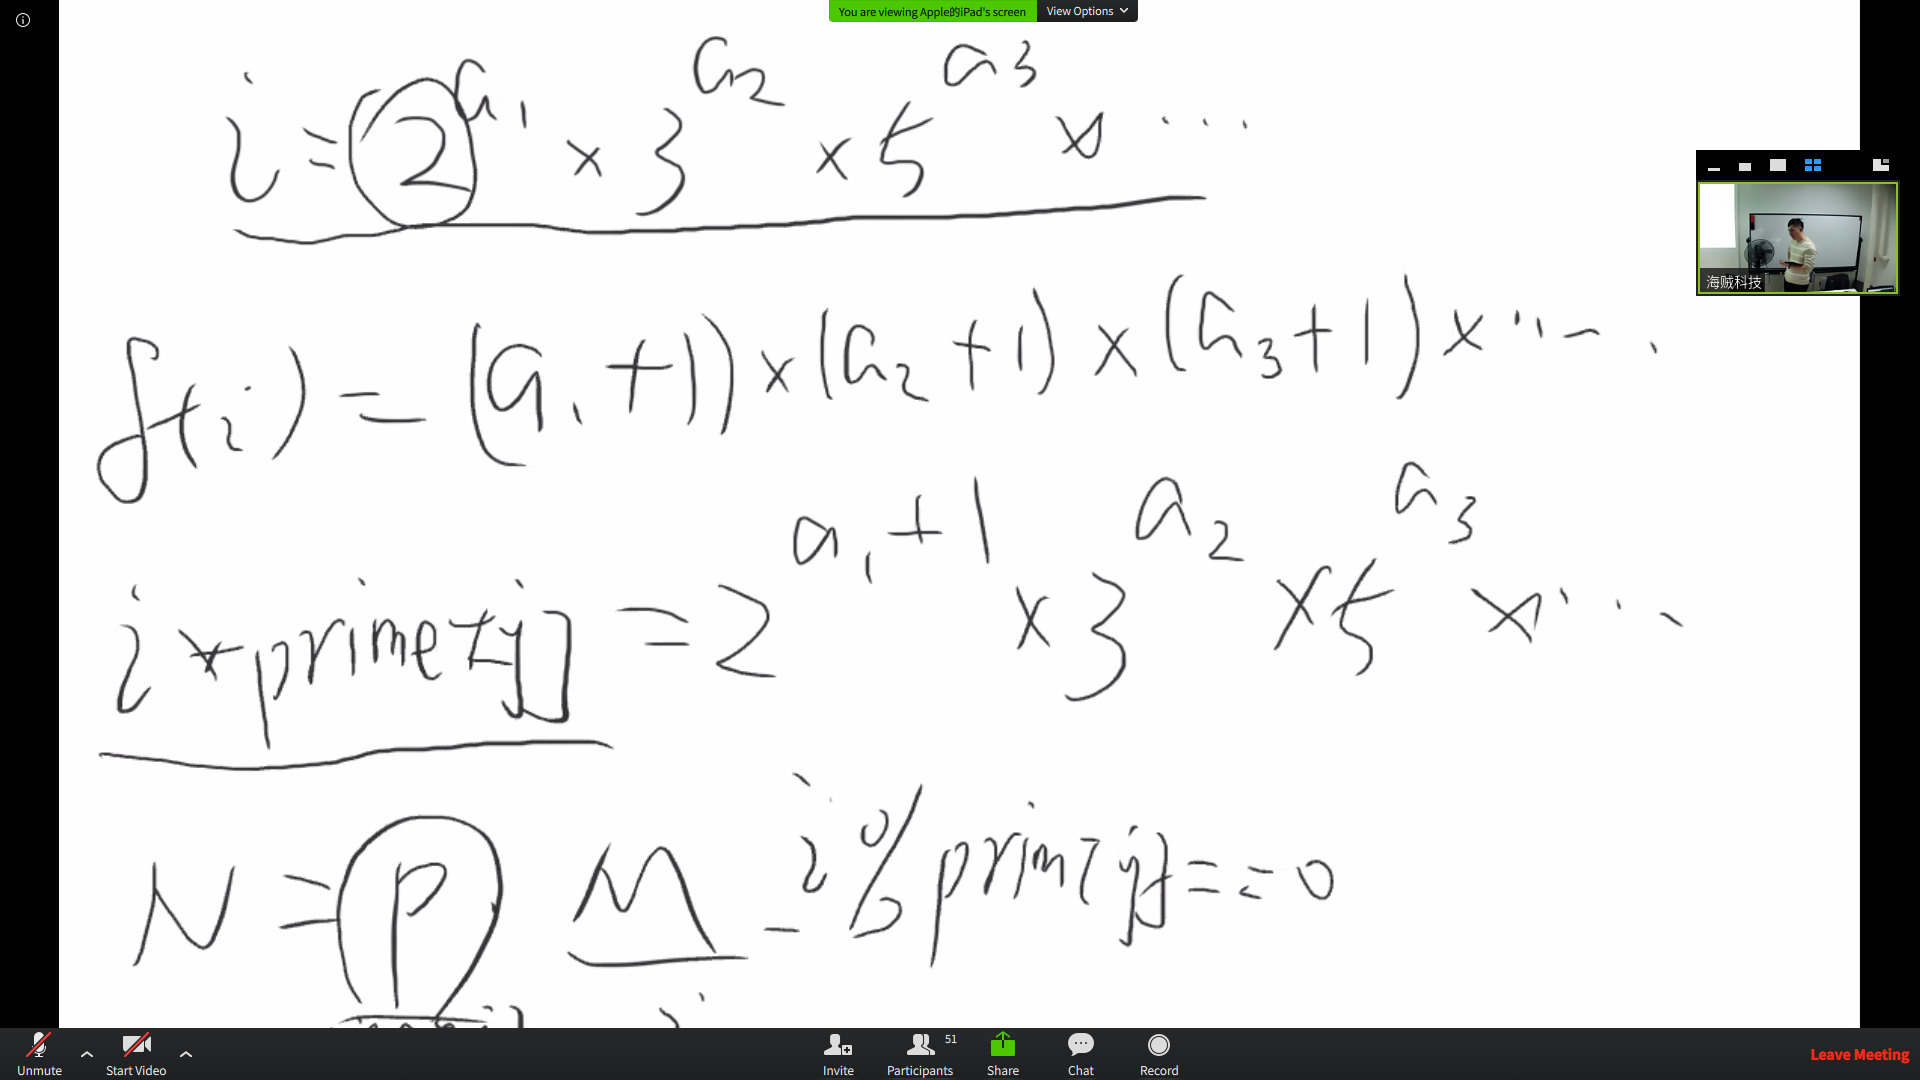 You are viewing Apple的iPad's screen View Options
i = 2^a₁ × 3^a₂ × 5^a₃ × ...
f(i) = (a₁+1) × (a₂+1) × (a₃+1) × ....
i*prime[j] = 2^a₁+1 × 3^a₂ × 5^a₃ × ...
N = P M i%prim[j]==0
海贼科技
Unmute Start Video Invite Participants 51 Share Chat Record Leave Meeting